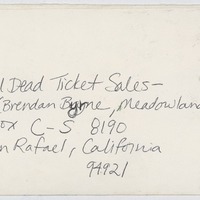 l Dead Ticket Sales—
(Brendan Byrne, Meadowland
ox C-S 8190
n Rafael, California
94921